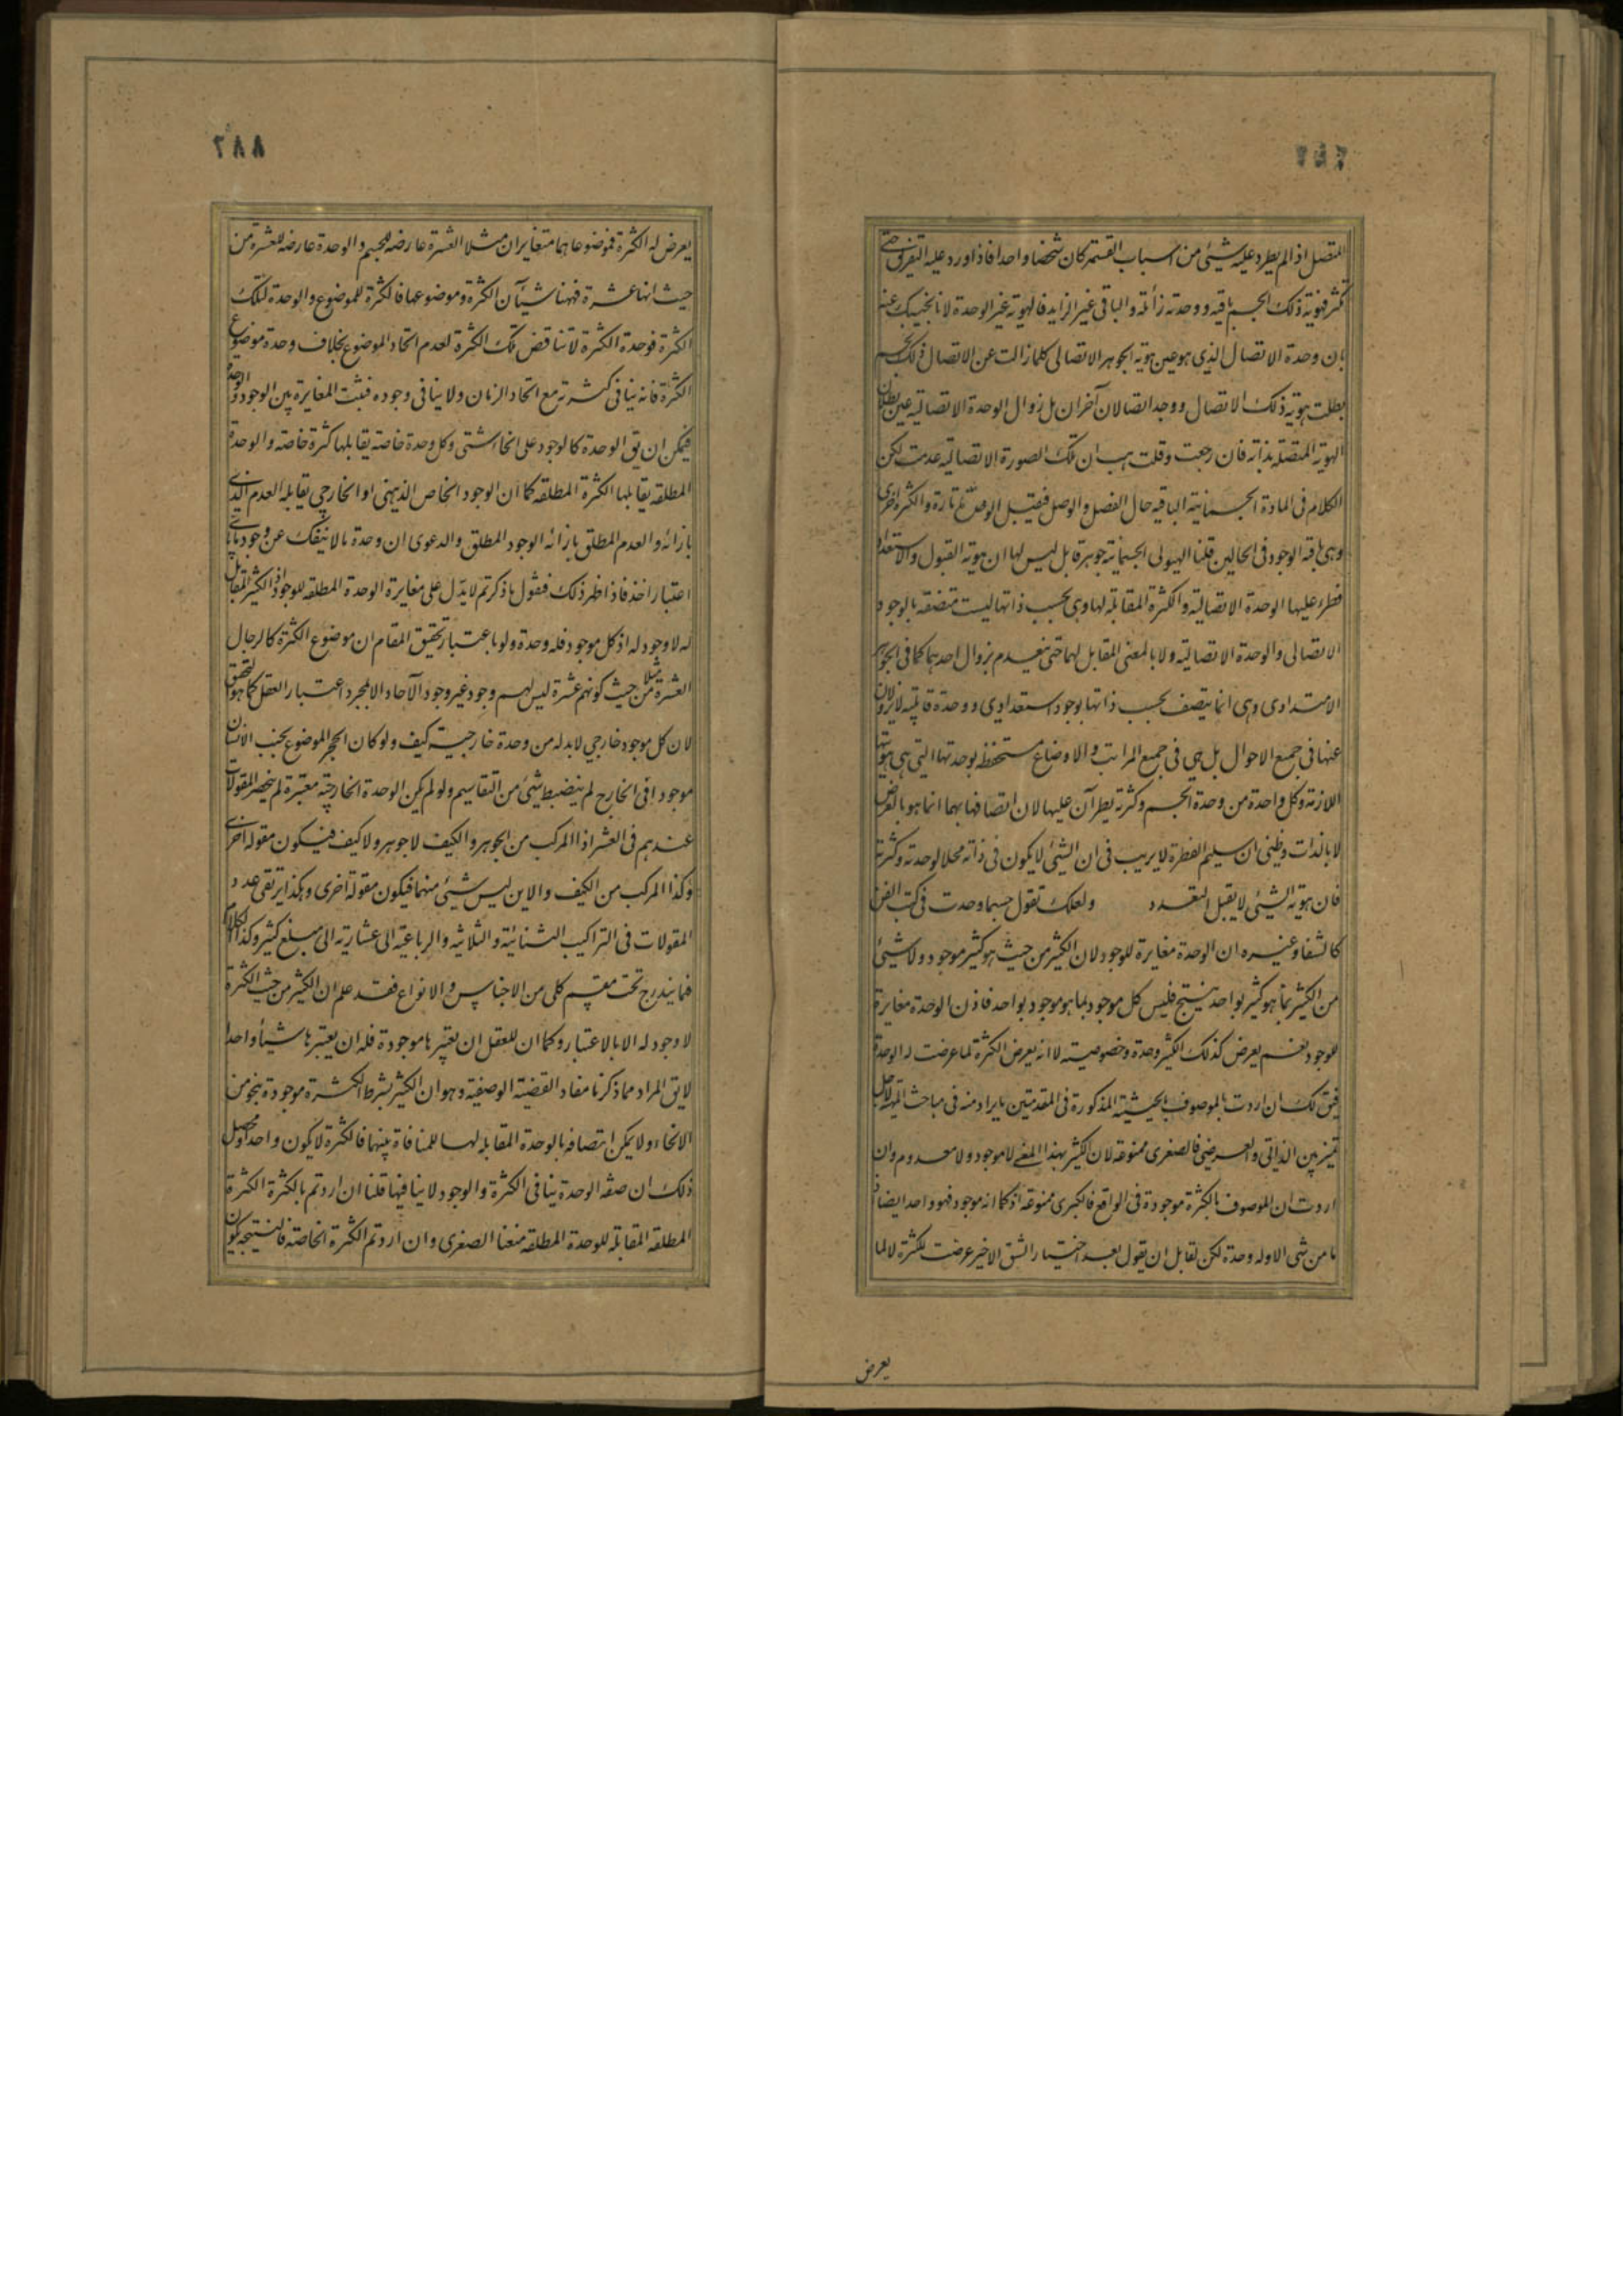 المتصل اذا لم يطرد عليه شيئ من اسباب القسمة كان شخصا واحدا فاذا ورد عليه التفريق حتى
تكثر فهوية ذلك الجسم باقيه ووحدته زائلة والباقى غير الزايد فالهوية غير الوحدة لانا نجيبك عنه
بان وحدة الاتصال الذى هو عين هوية الجوهر الاتصالى كلما زالت عن الاتصال ذلك الجسم
بطلت هوية ذلك الاتصال ووجد اتصالان آخران بل زوال الوحدة الاتصالية عين بطلان
الهوية المتصلة بذاته فان رجعت وقلت هب ان تلك الصورة الاتصالية عدمت لكن
الكلام فى المادة الجسمانية الباقيه حال الفصل والوصل فيقبل الوحدة تارة والكثرة اخرى
وهى باقية الوجود فى الحالين قلنا الهيولى الجسمانية جوهر قابل ليس لها ان هوية القبول والاستعداد
فطرء عليها الوحدة الاتصالية والكثرة المقابلة لها وهى بحسب ذاتها ليست متصفه بالوجود
الاتصالى والوحدة الاتصالية ولا بالمعنى المقابل لهما حتى ينعدم بزوال احدهما كما فى الجوهر
الامتدادى وهى انما يتصف بحسب ذاتها بوجود استعدادى ووحدة قابلية لا يزولان
عنها فى جميع الاحوال بل هى فى جميع المراتب والاوضاع مستحفظه بوحدتها التى هى هويتها
اللازمة وكل واحدة من وحدة الجسم وكثرته يطرآن عليها لان اتصافها بهما انما هو بالعرض
لا بالذات وظنى ان سليم الفطرة لا يريب فى ان الشيئ لا يكون فى ذاته محلا لوحدته وكثرته
فان هوية الشيئ لا يقبل التعدد ولعلك تقول حسبما وجدت فى كتب الفن
كالشفا وغيره ان الوحدة مغايرة للوجود لان الكثير من حيث هو كثير موجود ولا شيئ
من الكثير بما هو كثير بواحد ينتج فليس كل موجود بما هو موجود بواحد فاذن الوحدة مغايرة
للوجود نعم يعرض كذلك الكثير وحدة وخصوصيته لا انه يعرض الكثرة لما عرضت له الوحدة
فيق لك ان اردت بالموصوف بالحيثية المذكورة فى المقدمتين ما يراد منه فى مباحث المهية لاجل
تميز بين الذاتى والعرضى فالصغرى ممنوعه لان الكثير بهذا المعنى لا موجود ولا معدوم وان
اردت ان الموصوف بالكثرة موجودة فى الواقع فالكبرى ممنوعة اذ كما انه موجود فهو واحد ايضا اذ
ما من شى الا وله وحدة لكن لقابل ان يقول بعد اختيار الشق الاخير عرضت للكثرة لا لما
يعرض
٢٨٨
يعرض له الكثرة فموضوعاهما متغايران مثلا العشرة عارضه للجسم والوحدة عارضه للعشرة من
حيث انها عشرة فههنا شيآن الكثرة وموضوعها فالكثرة للموضوع والوحدة لتلك
الكثرة فوحدة الكثرة لا تناقض تلك الكثرة لعدم اتحاد الموضوع بخلاف وحدة موضوع
الكثرة فانه ينافى كثرته مع اتحاد الزمان ولا ينافى وجوده فثبت المغايرة بين الوجود والوحدة
فيمكن ان يق الوحدة كالوجود على انحا شتى وكل وحدة خاصة يقابلها كثرة خاصة والوحدة
المطلقه يقابلها الكثرة المطلقه كما ان الوجود الخاص الذهنى او الخارجى يقابله العدم الذى
بازائه والعدم المطلق بازائه الوجود المطلق والدعوى ان وحدة ما لا ينفك عن وجود ما باى
اعتبار اخذ فاذا ظهر ذلك فنقول ما ذكرتم لا يدل على مغايرة الوحدة المطلقه للوجود اذ الكثير المقابل
له لا وجود له اذ كل موجود فله وحدة ولو باعتبار تحقيق المقام ان موضوع الكثرة كالرجال
العشرة مثلا من حيث كونهم عشرة ليس لهم وجود غير وجود الآحاد الا بمجرد اعتبار العقل كما هو التحقيق
لان كل موجود خارجى لا بد له من وحدة خارجية كيف ولو كان الحجر الموضوع بجنب الانسان
موجودا فى الخارج لم ينضبط شيئ من التقاسيم ولو لم يكن الوحدة الخارجية معتبرة لم ينحصر المقولات
عندهم فى العشر اذ المركب من الجوهر والكيف لا جوهر ولا كيف فيكون مقوله اخرى
وكذا المركب من الكيف والاين ليس شيئ منهما فيكون مقولة اخرى وهكذا يرتقى عدد
المقولات فى التراكيب الثنائية والثلاثيه والرباعية الى عشارية الى مبلغ كثير وكذا الكلام
فما يندرج تحت مقسم كلى من الاجناس والانواع فقد علم ان الكثير من حيث الكثرة
لا وجود له الا بالاعتبار وكما ان للعقل ان يعتبرها موجودة فله ان يعتبرها شيئا واحدا
لا يق المراد مما ذكرنا مفاد القضية الوصفية وهو ان الكثير بشرط الكثرة موجودة بنحو من
الانحاء ولا يمكن اتصافه بالوحدة المقابله لها للمنافاة بينهما فالكثرة لا يكون واحدا ومحصل
ذلك ان صفه الوحدة ينافى الكثرة والوجود لا ينافيها قلنا ان اردتم بالكثرة الكثرة
المطلقه المقابلة للوحدة المطلقه منعنا الصغرى وان اردتم الكثرة الخاصة فالنتيجه يكون